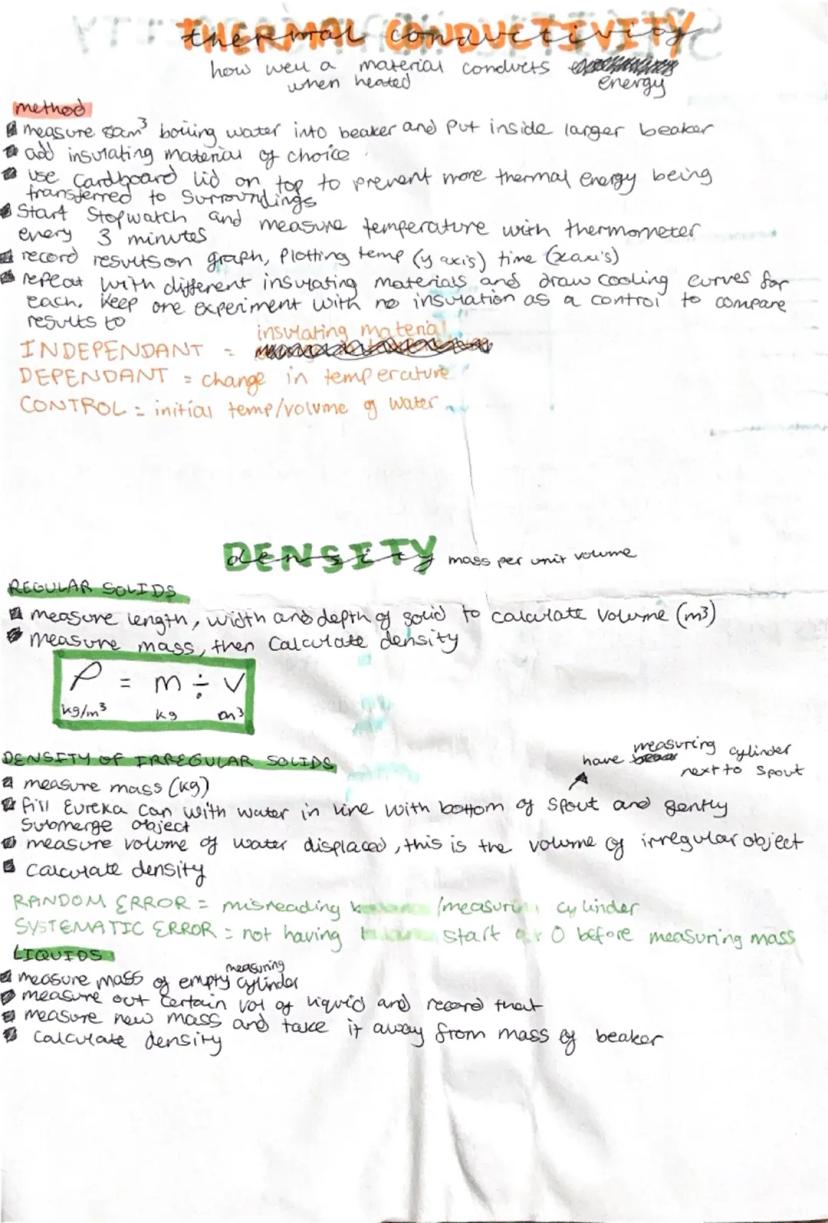 THERMAL CONDUCTIVITY
thermal conductivity
how well a material conducts
when heated energy
method
measure 80cm³ boiling water into beaker and put inside larger beaker
add insulating material of choice.
use cardboard lid on top to prevent more thermal energy being
transferred to surroundings
Start Stopwatch and measure temperature with thermometer
every 3 minutes
record results on graph, plotting temp (y axis) time (x axis)
repeat with different insulating materials and draw cooling curves for
each. Keep one experiment with no insulation as a control to compare
results to
insulating material
INDEPENDANT =
DEPENDANT = change in temperature
CONTROL = initial temp/volume of water
DENSITY mass per unit volume
density
REGULAR SOLIDS
measure length, width and depth of solid to calculate volume (m³)
measure mass, then calculate density
ρ = m ÷ v
kg/m³ kg m³
DENSITY OF IRREGULAR SOLIDS
have measuring cylinder
next to spout
measure mass (kg)
fill Eureka can with water in line with bottom of spout and gently
submerge object
measure volume of water displaced, this is the volume of irregular object
calculate density
RANDOM ERROR = misreading /measuring cylinder
SYSTEMATIC ERROR = not having start at 0 before measuring mass
LIQUIDS
measure mass of empty measuring cylinder
measure out certain vol of liquid and record that
measure new mass and take it away from mass of beaker
calculate density